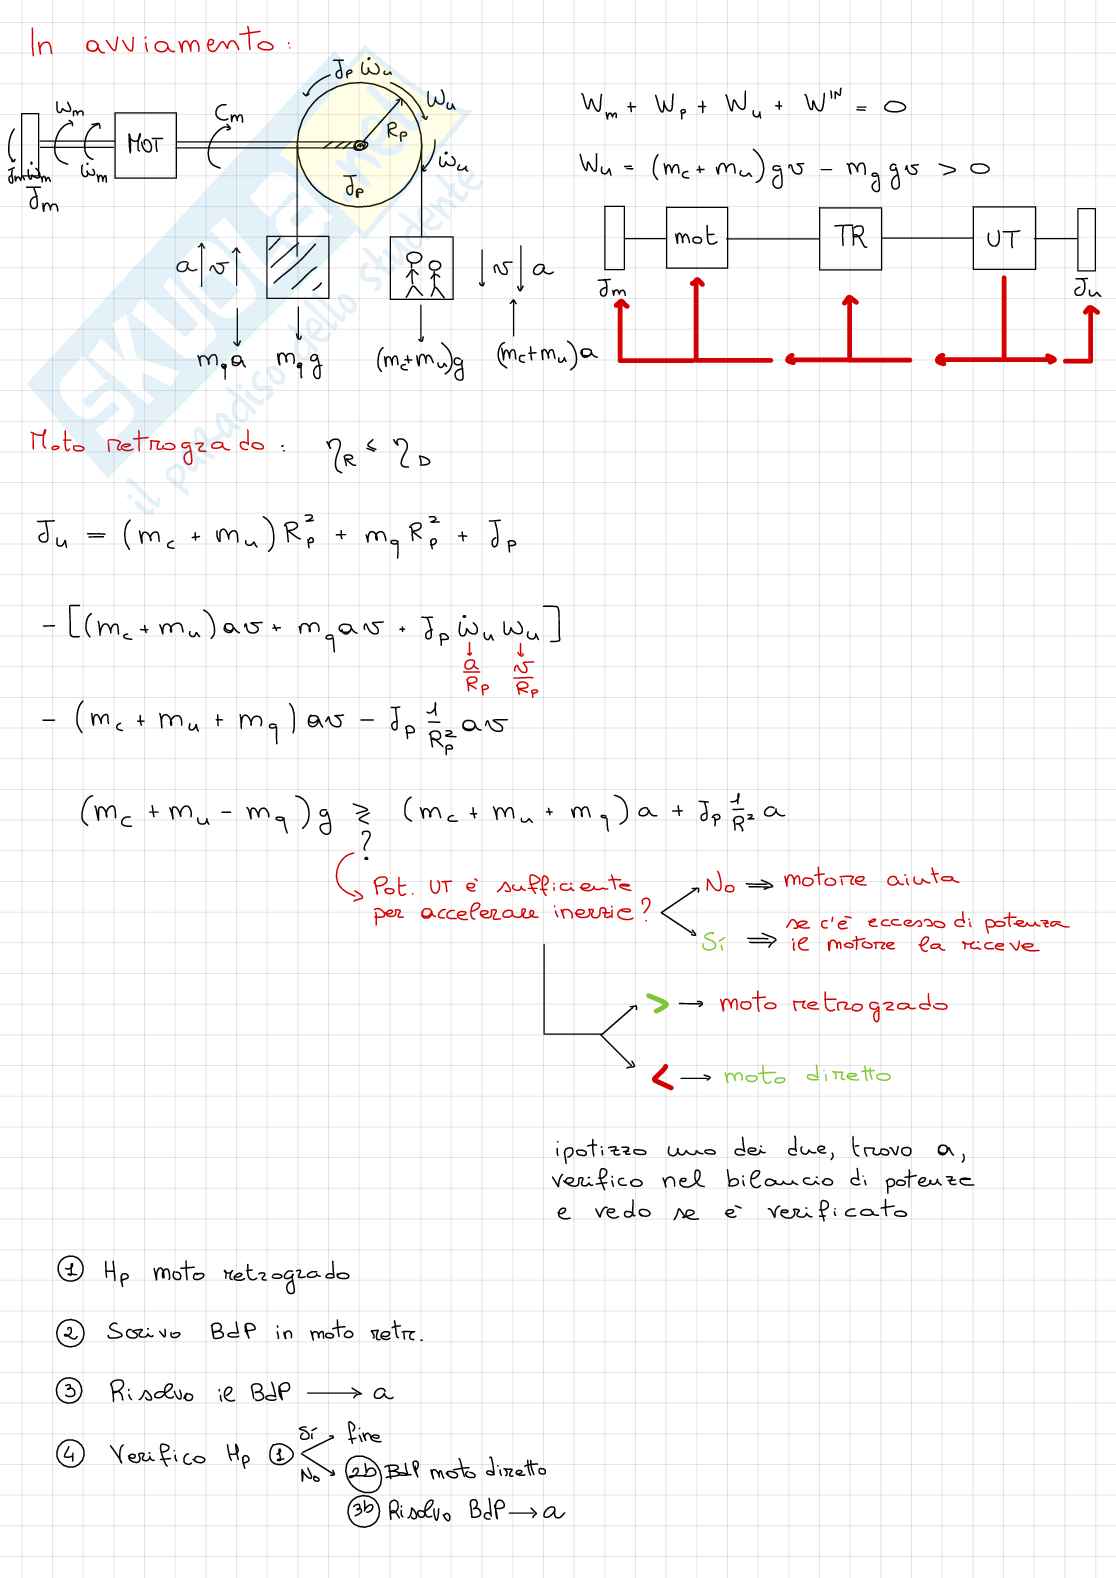 In avviamento:
J_p ω̇_u
ω_m
C_m
ω_u
R_p
MOT
ω̇_m
ω̇_u
J_m ω̇_m
J_m
J_p
W_m + W_p + W_u + W^IN = 0
W_u = (m_c + m_u) g v - m_q g v > 0
mot
TR
UT
a v
v a
J_m
J_u
m_q a
m_q g
(m_c+m_u)g
(m_c+m_u)a
SKUOLA.net
il paradiso dello studente
Moto retrogrado: η_R ≤ η_D
J_u = (m_c + m_u) R_p^2 + m_q R_p^2 + J_p
- [(m_c + m_u) a v + m_q a v + J_p ω̇_u ω_u]
↓ ↓
a/R_p v/R_p
- (m_c + m_u + m_q) a v - J_p 1/R_p^2 a v
(m_c + m_u - m_q) g ≷ (m_c + m_u + m_q) a + J_p 1/R^2 a
?
Pot. UT è sufficiente
per accelerare inerzie?
No ⇒ motore aiuta
Sí ⇒ se c'è eccesso di potenza
il motore la riceve
> → moto retrogrado
< → moto diretto
ipotizzo uno dei due, trovo a,
verifico nel bilancio di potenze
e vedo se è verificato
① Hp moto retrogrado
② Scrivo BdP in moto retr.
③ Risolvo il BdP → a
④ Verifico Hp ①
Sí fine
No 2b BdP moto diretto
3b Risolvo BdP → a